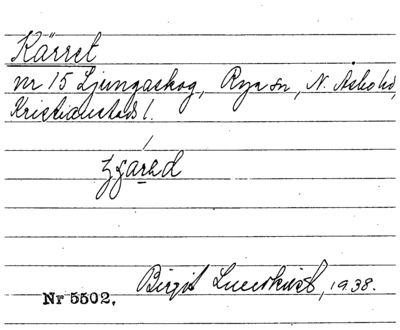 Kärret
nr 15 Ljungaskog, Rya sn, N. Åsbo hd,
Kristianstads l.
Birgit Lundkvist, 1938.
Nr 5502.